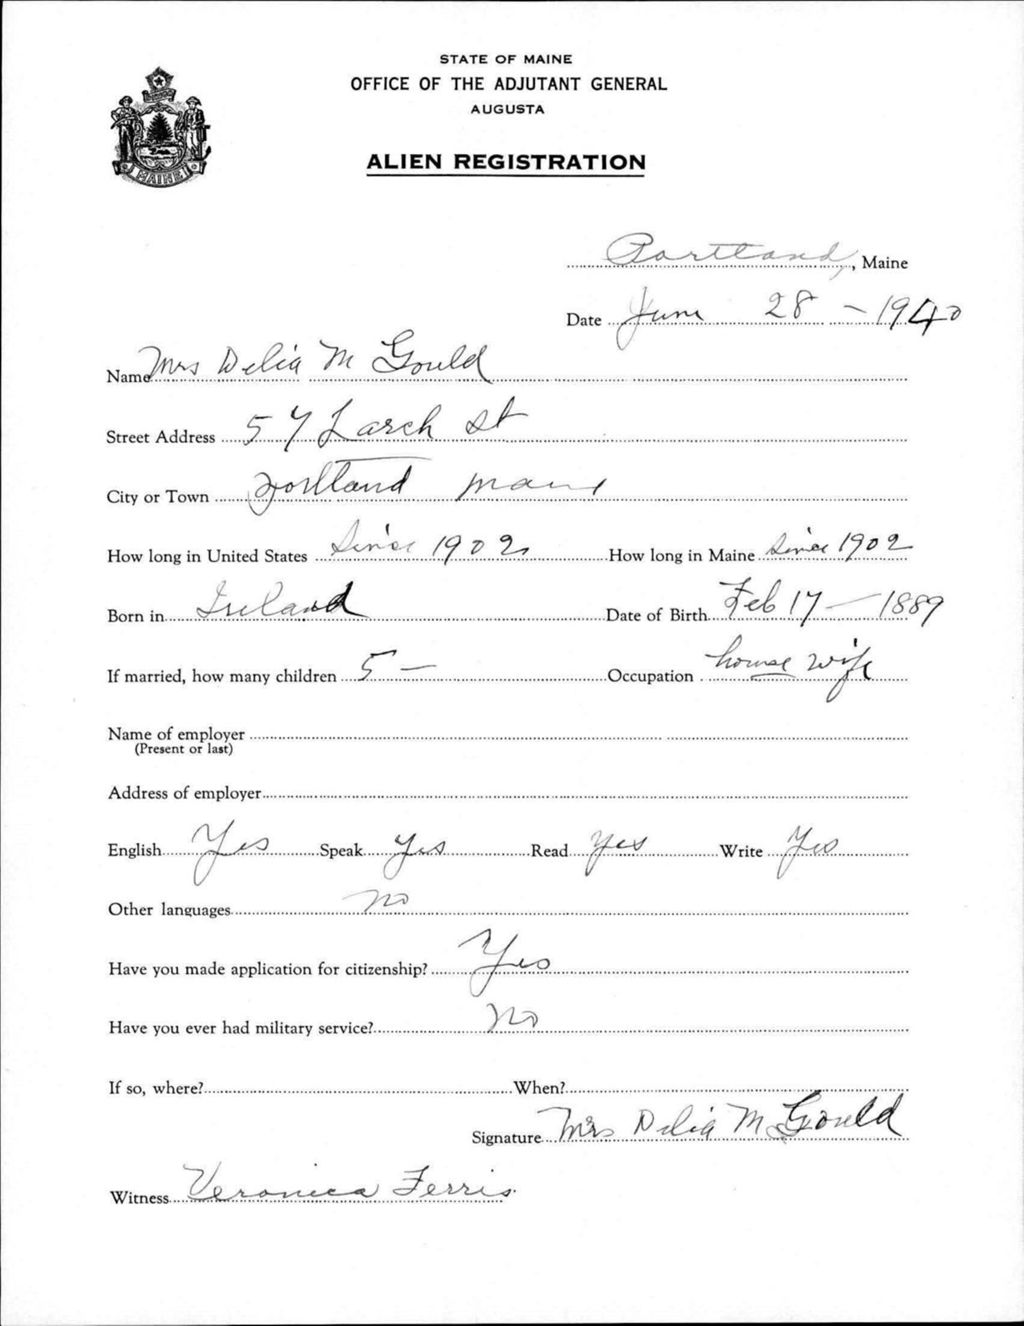 STATE OF MAINE
OFFICE OF THE ADJUTANT GENERAL
AUGUSTA
ALIEN REGISTRATION
MAINE
Portland, Maine
Date June 28 - 1940
Name Mrs Delia M Gould
Street Address 57 Larch St
City or Town Portland Maine
How long in United States Since 1902 How long in Maine Since 1902
Born in Ireland Date of Birth Feb 17 - 1889
If married, how many children 5 - Occupation house wife
Name of employer
(Present or last)
Address of employer
English Yes Speak Yes Read Yes Write Yes
Other languages no
Have you made application for citizenship? Yes
Have you ever had military service? No
If so, where? When?
Signature Mrs Delia M Gould
Witness Veronica Ferris